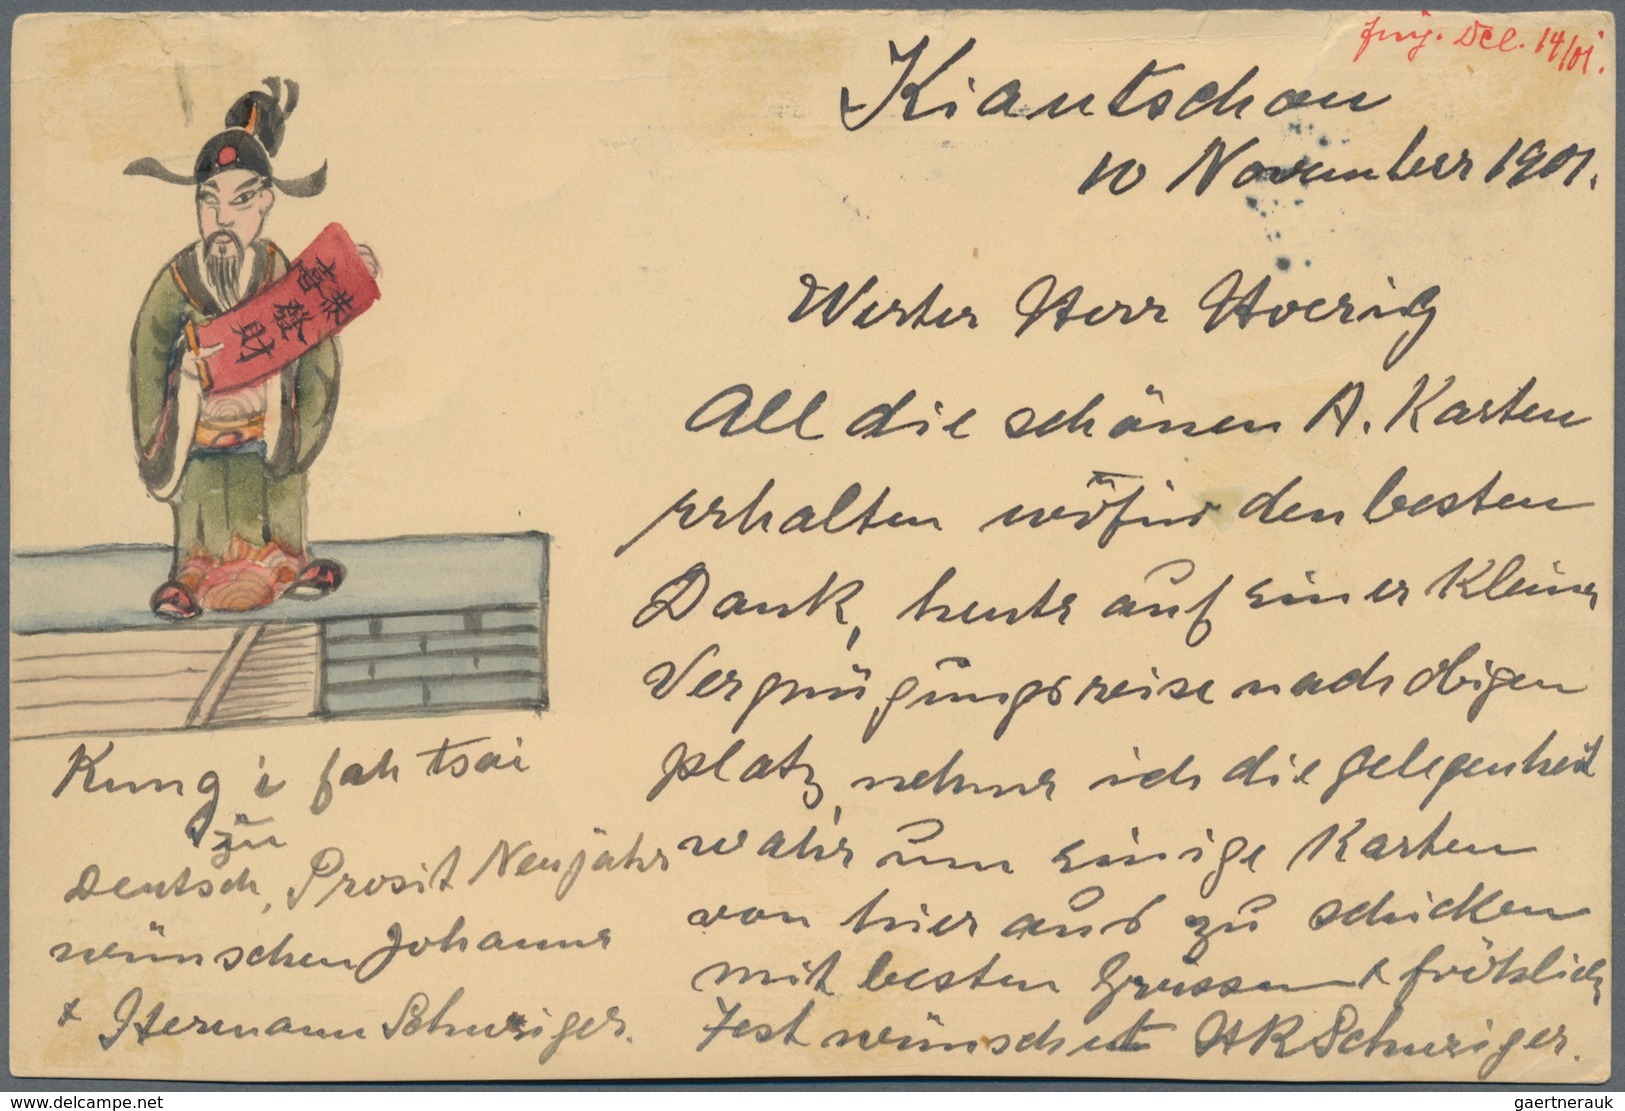 Dec. 14/01.
Kiautschou
10 November 1901.
Werter Herr Hoerig
All die schönen A. Karten
erhalten wofür den besten
Dank, heute auf einer kleinen
Vergnügungsreise nach obigen
platz, nehme ich die gelegenheit
wahr um einige Karten
von hier aus zu schicken
mit besten Grüssen & fröhlich
Fest wünscht HRSchwriger.
恭
喜發
財
Kung i fah tsai
zu
Deutsch, Prosit Neujahr
wünschen Johanne
& Hermann Schwriger.
www.delcampe.net
gaertnerauk